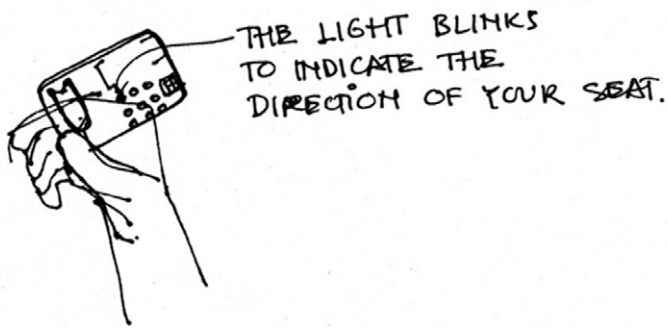 THE LIGHT BLINKS
TO INDICATE THE
DIRECTION OF YOUR SEAT.